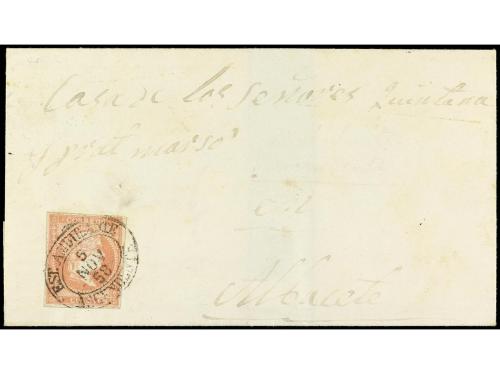 Casa de los Señores Quintana
y
en
Albacete
EST. AMBULANTE
5
NOV
58